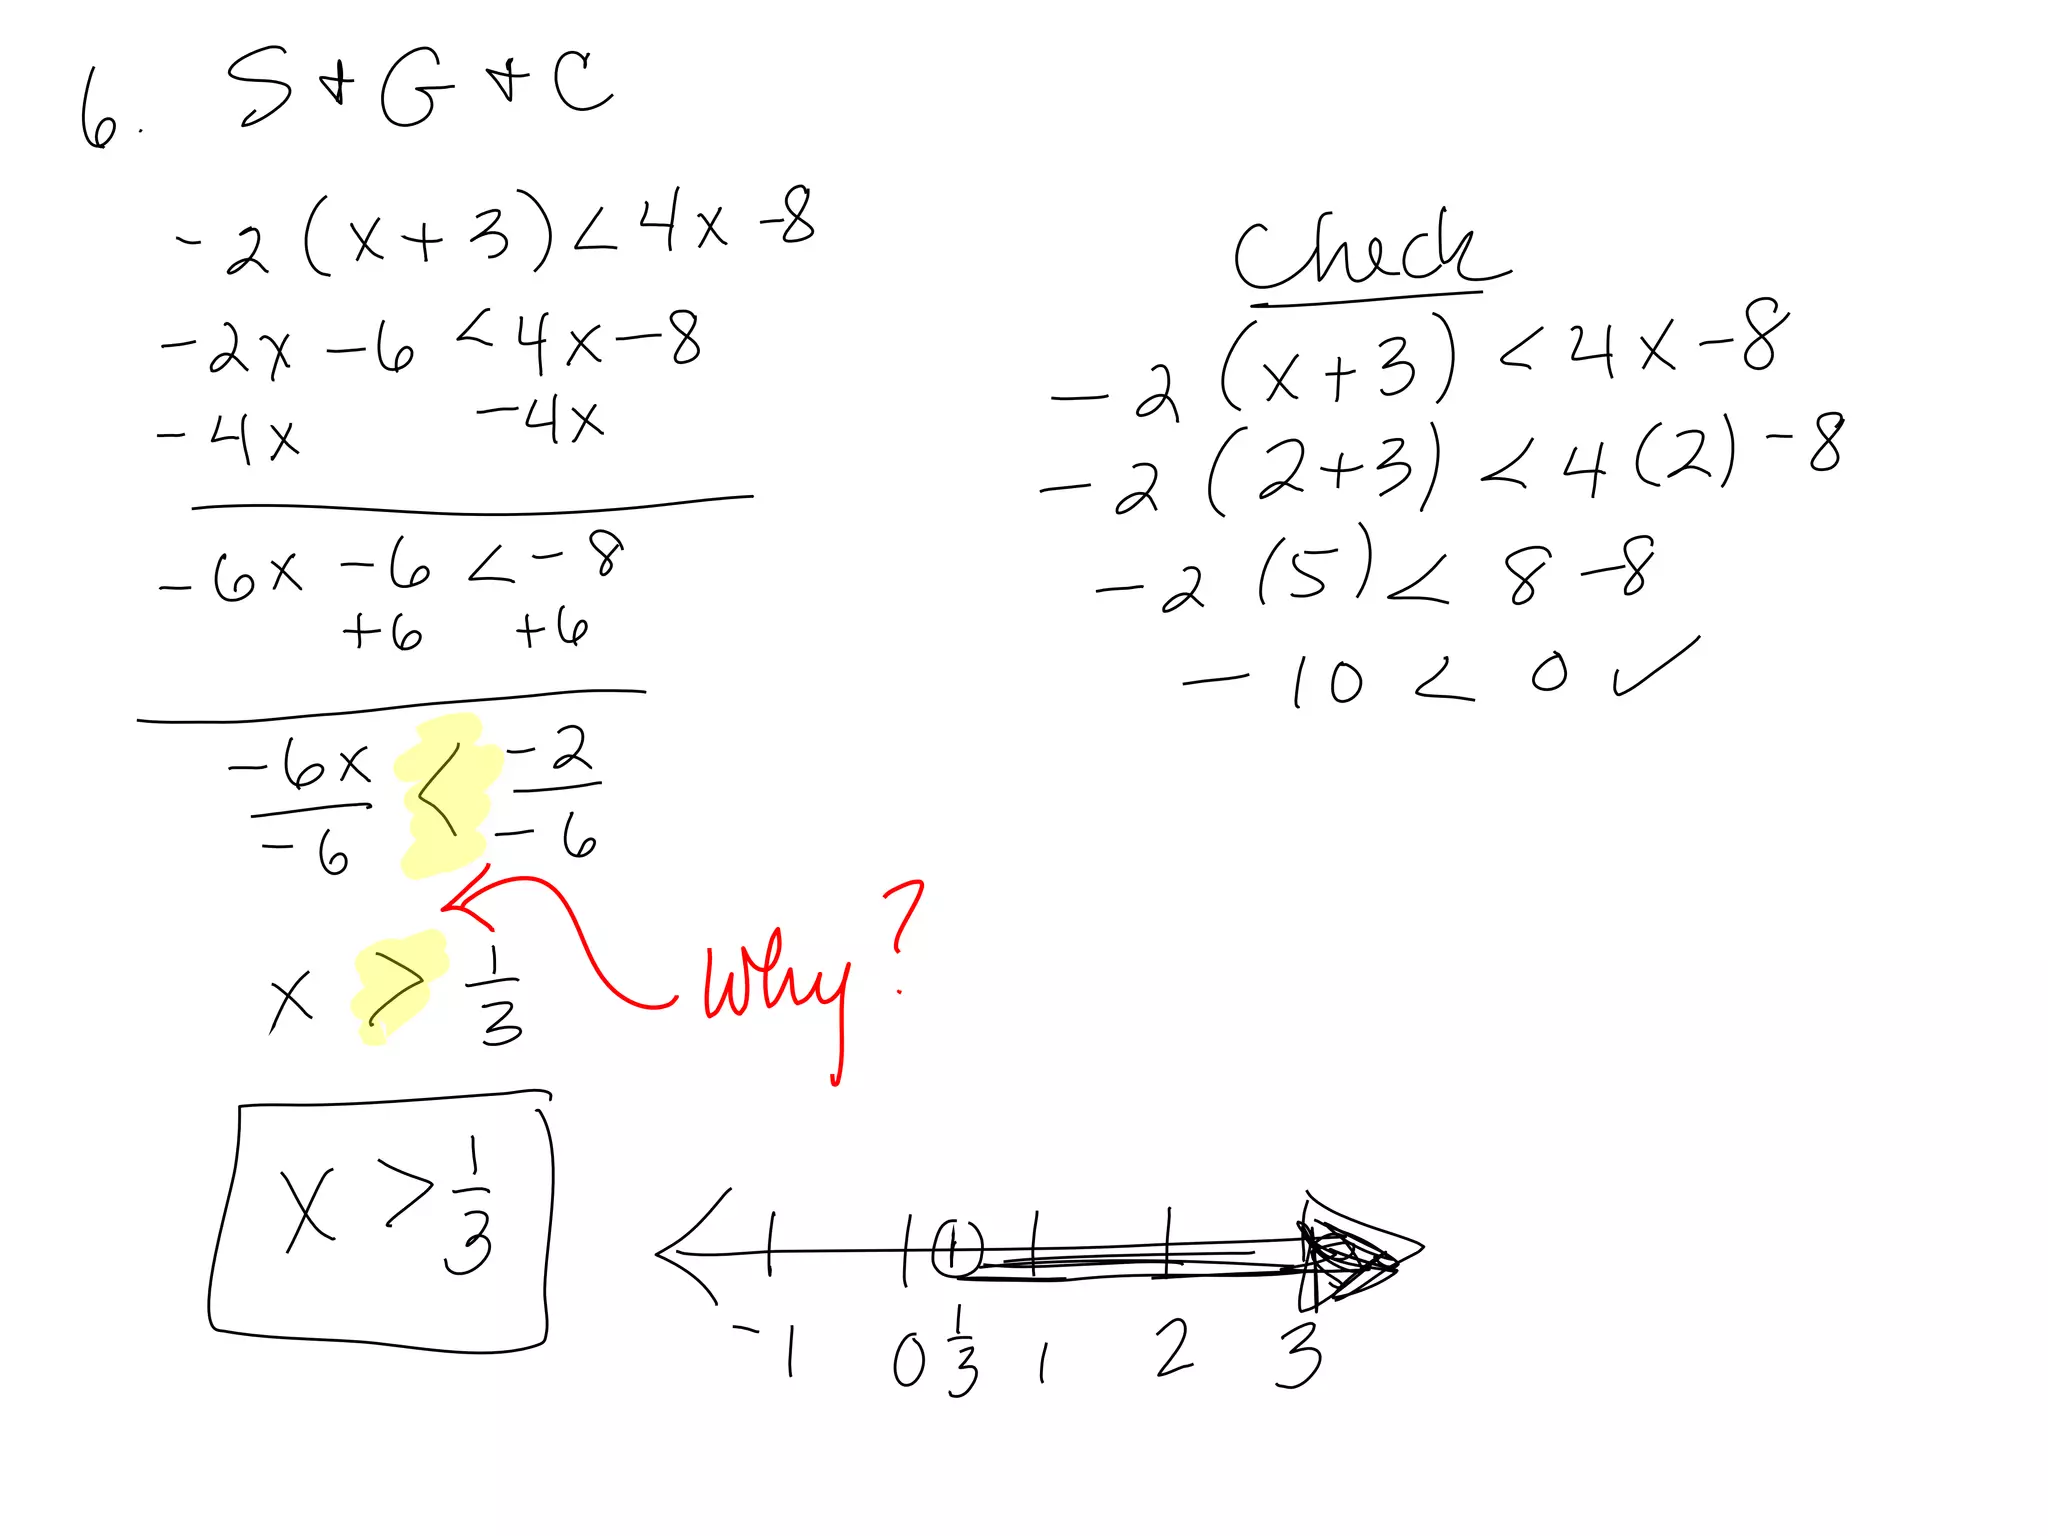 6. S + G + C
-2(x+3) < 4x -8
-2x -6 < 4x -8
-4x -4x
-6x -6 < -8
+6 +6
-6x < -2
-6 -6
x > 1/3
Why?
x > 1/3
-1 0 1/3 1 2 3
Check
-2(x+3) < 4x -8
-2(2+3) < 4(2) -8
-2(5) < 8 -8
-10 < 0 ✓